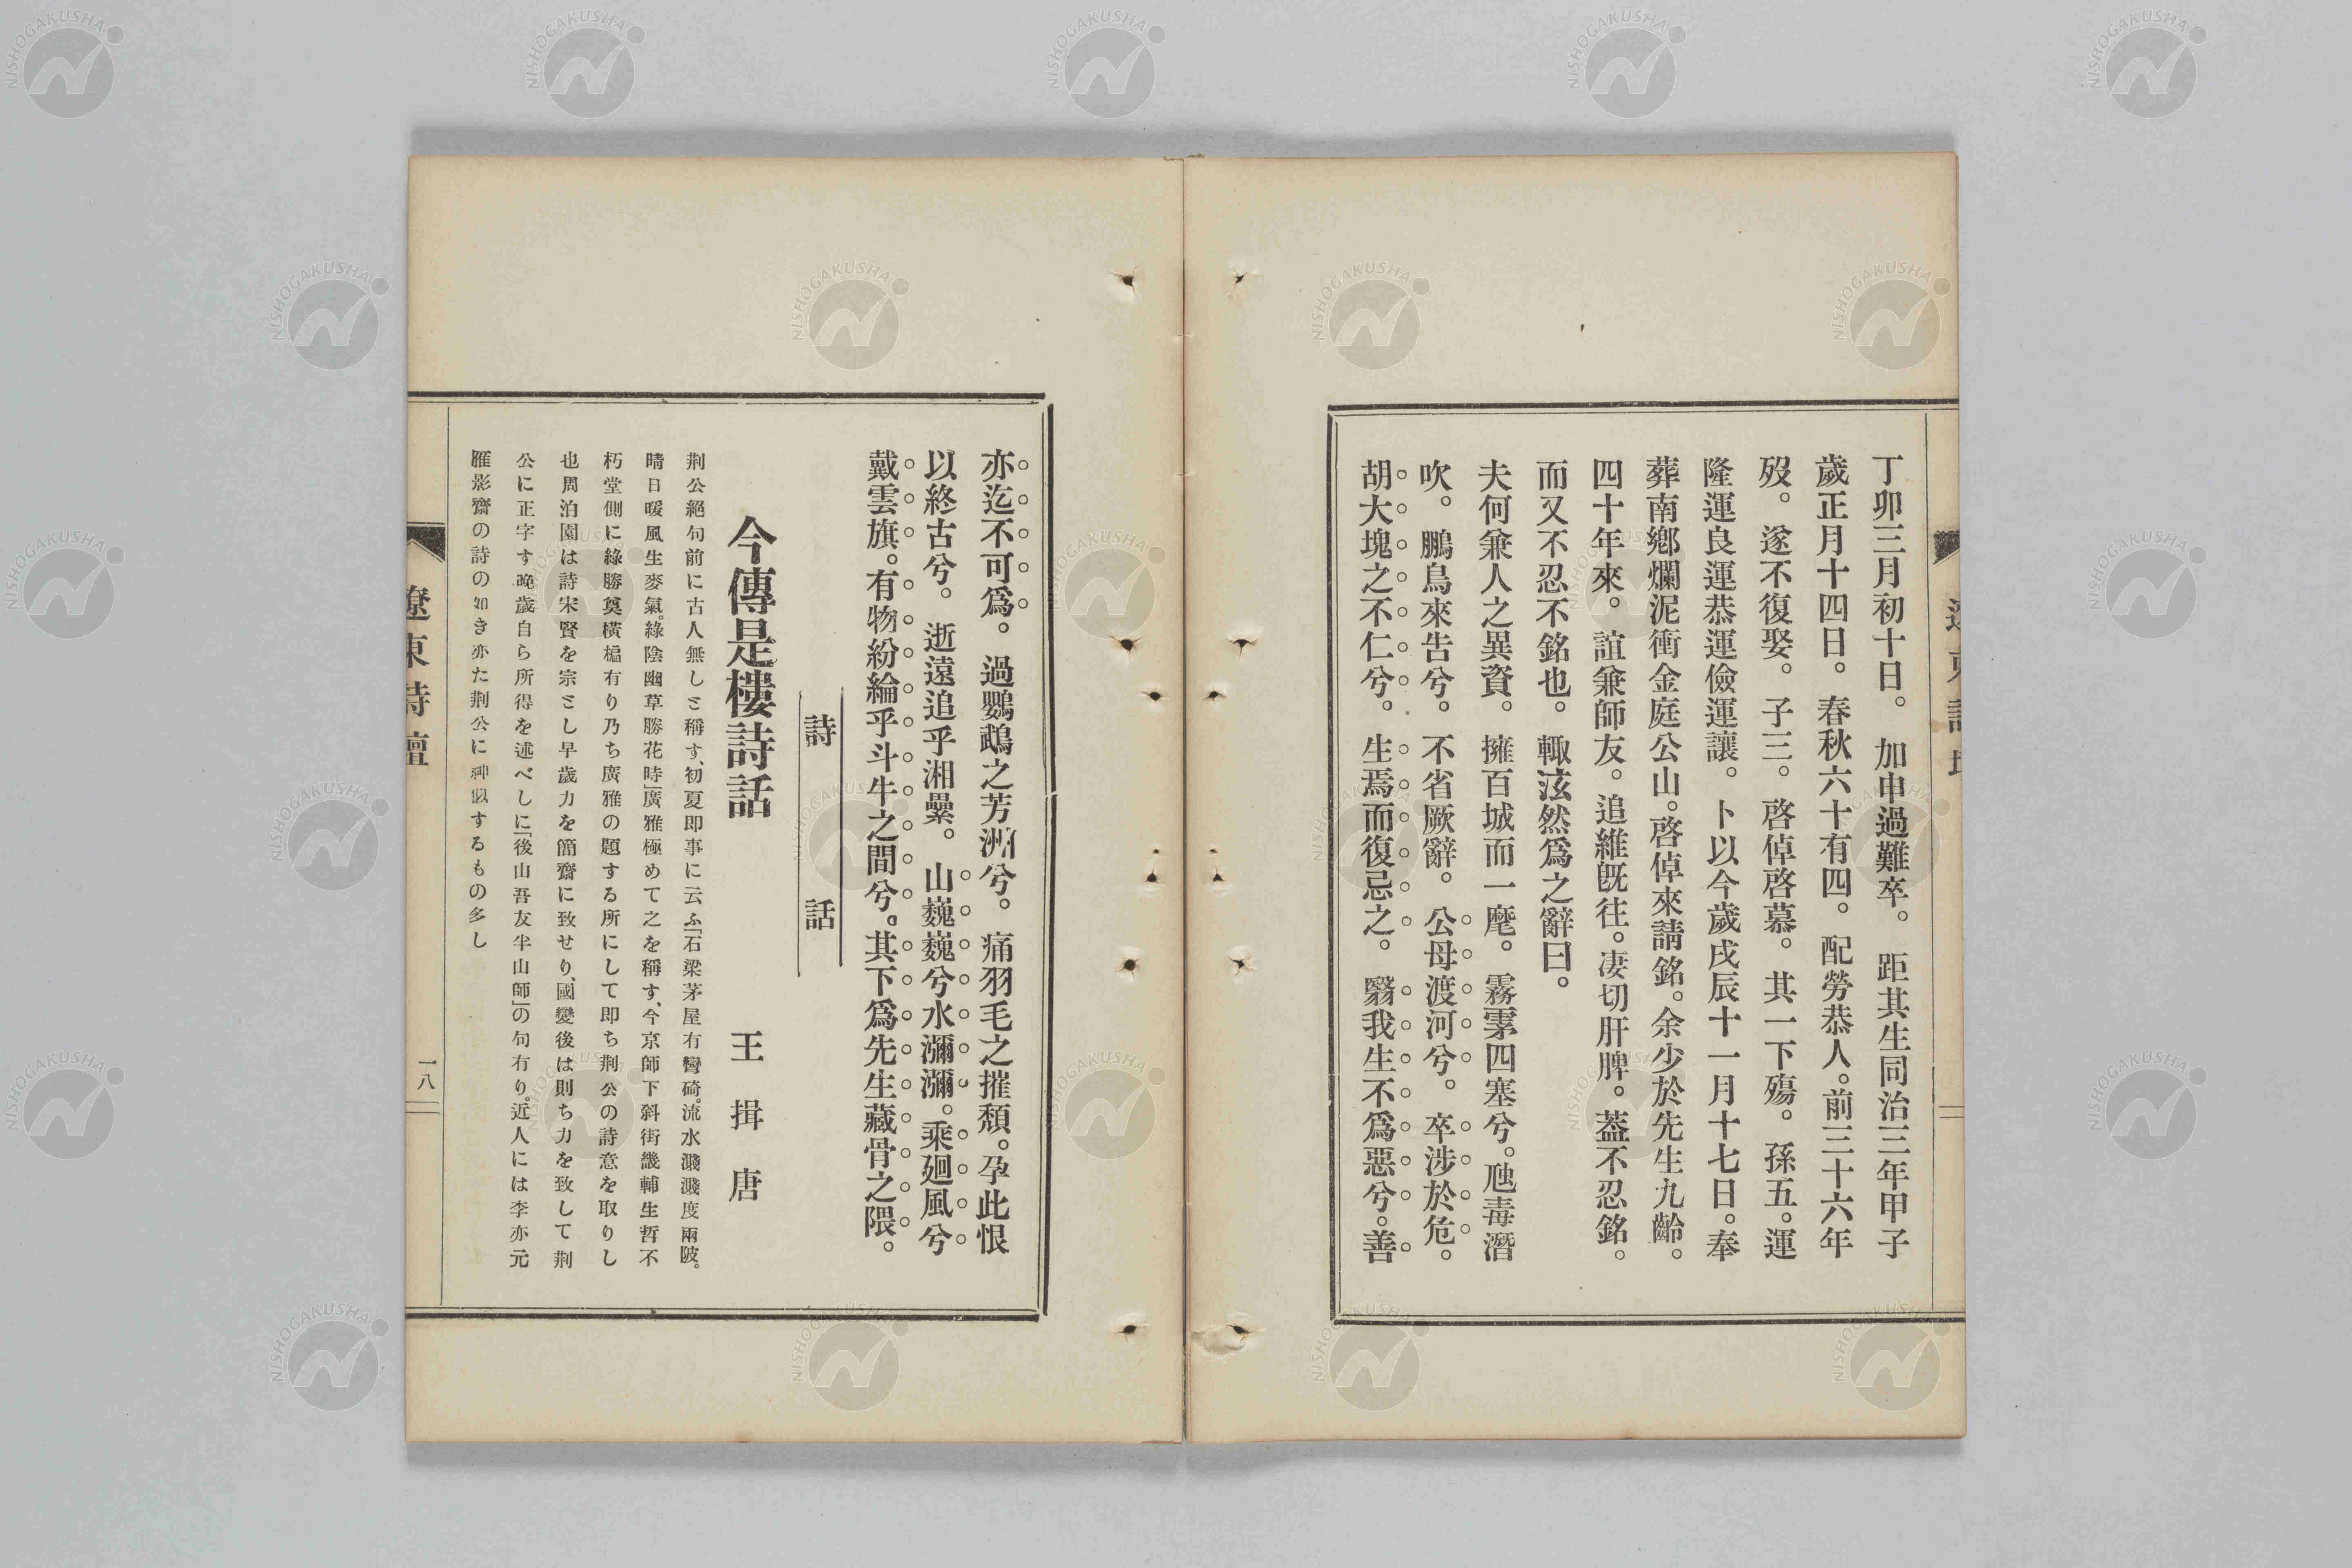 丁卯三月初十日。加申過難卒。距其生同治三年甲子
歲正月十四日。春秋六十有四。配勞恭人。前三十六年
歿。遂不復娶。子三。啓倬啓慕。其一下殤。孫五。運
隆運良運恭運儉運讓。卜以今歲戌辰十一月十七日。奉
葬南鄉爛泥衝金庭公山。啓倬來請銘。余少於先生九齡。
四十年來。誼兼師友。追維旣往。凄切肝脾。蓋不忍銘。
而又不忍不銘也。輙泫然爲之辭曰。
夫何兼人之異資。擁百城而一麾。霧雺四塞兮。虺毒潛
吹。鵬鳥來告兮。不省厥辭。公母渡河兮。卒涉於危。
胡大塊之不仁兮。生焉而復忌之。翳我生不爲惡兮。善
亦迄不可爲。過鸚鵡之芳洲兮。痛羽毛之摧頹。孕此恨
以終古兮。逝遠追乎湘纍。山巍巍兮水瀰瀰。乘廻風兮
戴雲旗。有物紛綸乎斗牛之間兮。其下爲先生藏骨之隈。
詩話
今傳是樓詩話　王揖唐
荆公絕句前に古人無しと稱す、初夏即事に云ふ「石梁茅屋有彎碕。流水濺濺度兩陂。
晴日暖風生麥氣。綠陰幽草勝花時」廣雅極めて之を稱す、今京師下斜街畿輔先哲不
朽堂側に綠勝奠橫楄有り乃ち廣雅の題する所にして即ち荆公の詩意を取りし
也周泊園は詩宋賢を宗とし早歲力を簡齋に致せり、國變後は則ち力を致して荆
公に正字す晩歲自ら所得を述べしに「後山吾友半山師」の句有り。近人には李亦元
雁影齋の詩の如き亦た荆公に神似するもの多し
遼東詩壇
一八